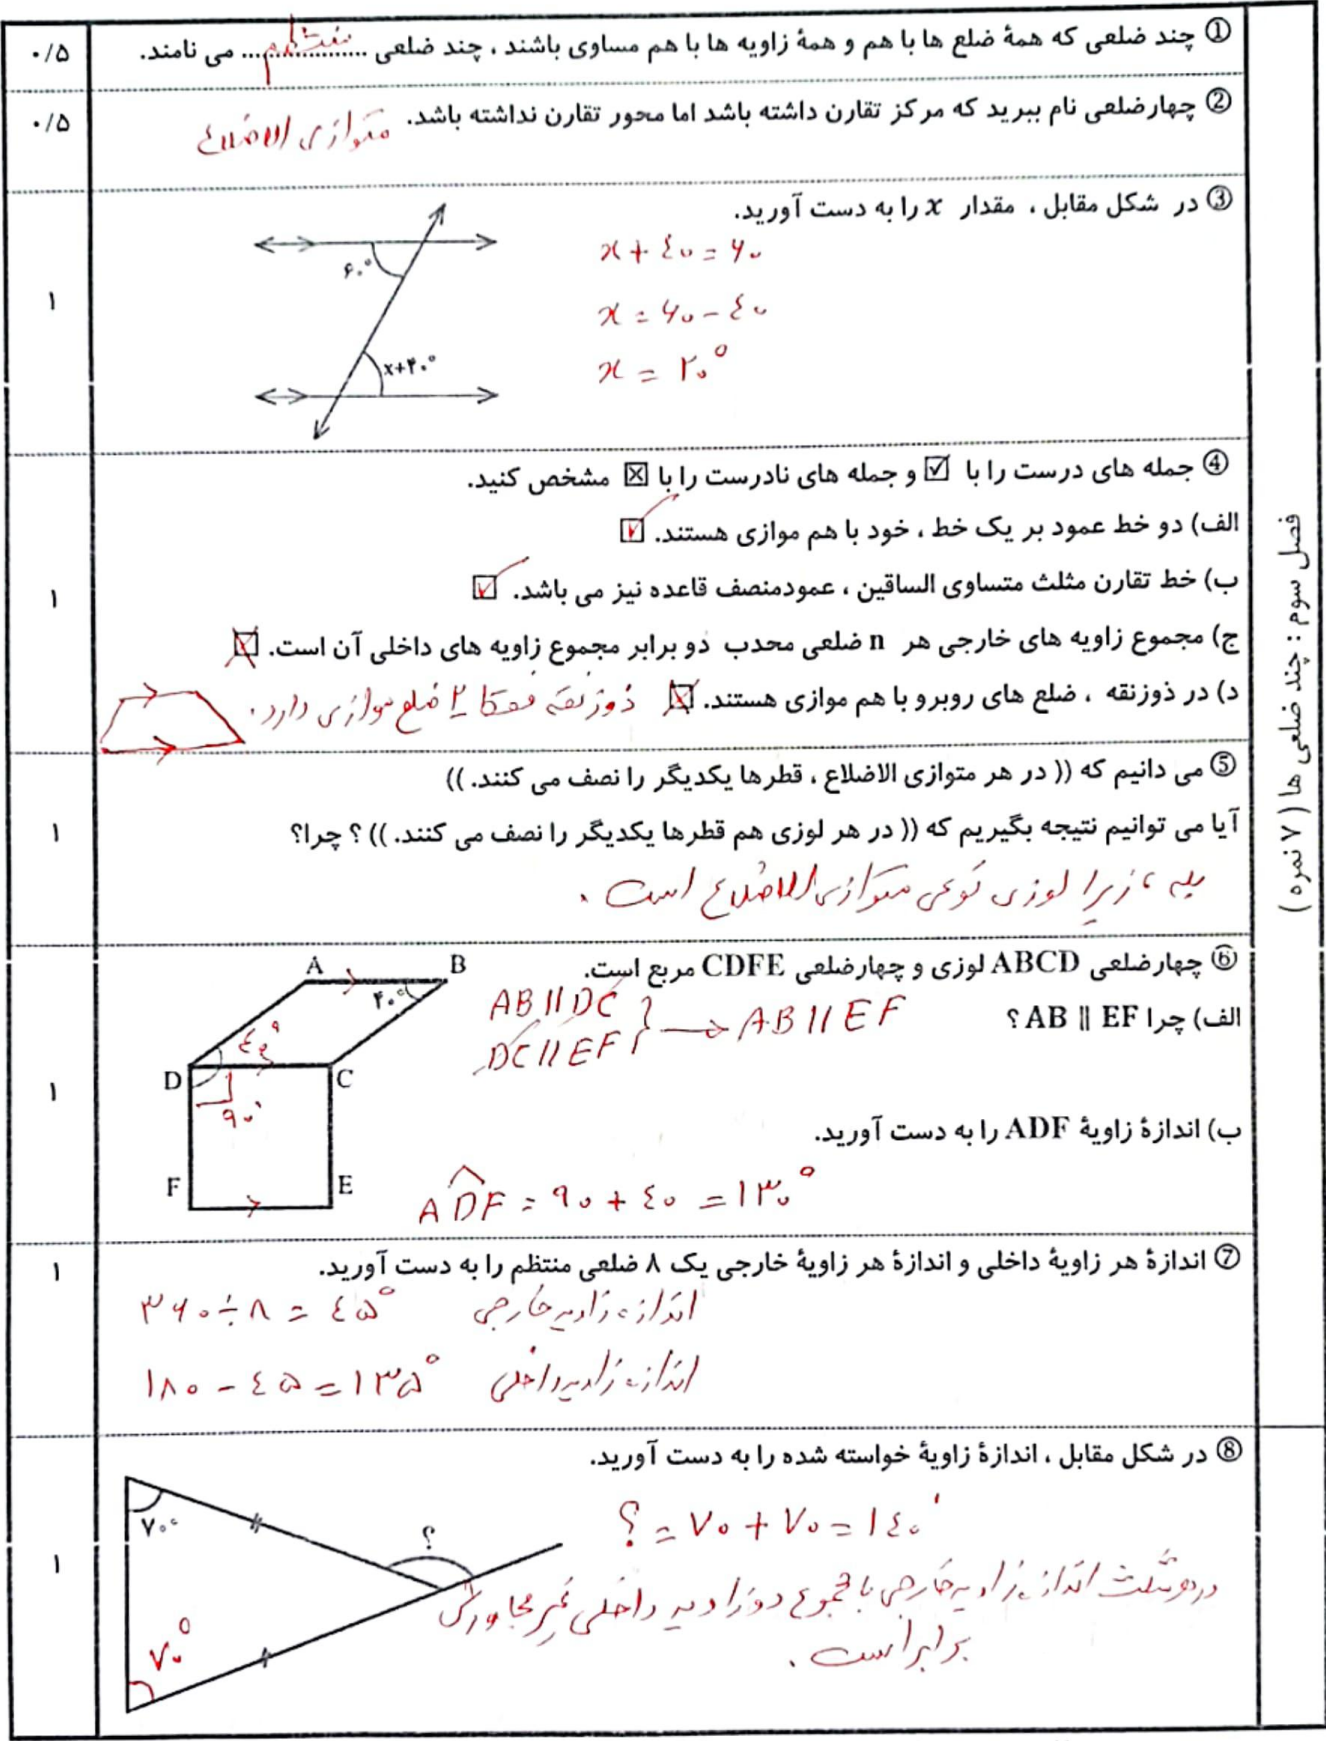 فصل سوم : چند ضلعی ها ( ۷ نمره )
① چند ضلعی که همهٔ ضلع ها با هم و همهٔ زاویه ها با هم مساوی باشند ، چند ضلعی ...منتظم... می نامند.
۰/۵
② چهارضلعی نام ببرید که مرکز تقارن داشته باشد اما محور تقارن نداشته باشد. متوازی الاضلاع
۰/۵
③ در شکل مقابل ، مقدار x را به دست آورید.
۱
x + ٤۰ = ۶۰
x = ۶۰ - ٤۰
x = ۲۰°
۶۰°
x+۴۰°
④ جمله های درست را با ☑ و جمله های نادرست را با ☒ مشخص کنید.
۱
الف) دو خط عمود بر یک خط ، خود با هم موازی هستند. ☑
ب) خط تقارن مثلث متساوی الساقین ، عمودمنصف قاعده نیز می باشد. ☑
ج) مجموع زاویه های خارجی هر n ضلعی محدب دو برابر مجموع زاویه های داخلی آن است. ☒
د) در ذوزنقه ، ضلع های روبرو با هم موازی هستند. ☒ ذوزنقه فقط ۲ ضلع موازی دارد.
⑤ می دانیم که (( در هر متوازی الاضلاع ، قطرها یکدیگر را نصف می کنند. ))
آیا می توانیم نتیجه بگیریم که (( در هر لوزی هم قطرها یکدیگر را نصف می کنند. )) ؟ چرا؟
۱
بله ، زیرا لوزی نوعی متوازی الاضلاع است .
⑥ چهارضلعی ABCD لوزی و چهارضلعی CDFE مربع است.
۱
الف) چرا AB ∥ EF ؟
AB ∥ DC
DC ∥ EF
} → AB ∥ EF
A B
۴۰°
٤۰°
D C
۹۰°
F E
ب) اندازهٔ زاویهٔ ADF را به دست آورید.
ADF = ۹۰ + ٤۰ = ۱۳۰°
⑦ اندازهٔ هر زاویهٔ داخلی و اندازهٔ هر زاویهٔ خارجی یک ۸ ضلعی منتظم را به دست آورید.
۱
اندازه زاویه خارجی ۳۶۰ ÷ ۸ = ٤۵°
اندازه زاویه داخلی ۱۸۰ - ٤۵ = ۱۳۵°
⑧ در شکل مقابل ، اندازهٔ زاویهٔ خواسته شده را به دست آورید.
۱
؟ = ۷۰ + ۷۰ = ۱٤۰°
در هر مثلث اندازه زاویه خارجی با مجموع دو زاویه داخلی غیر مجاورش
برابر است .
۷۰°
؟
۷۰°